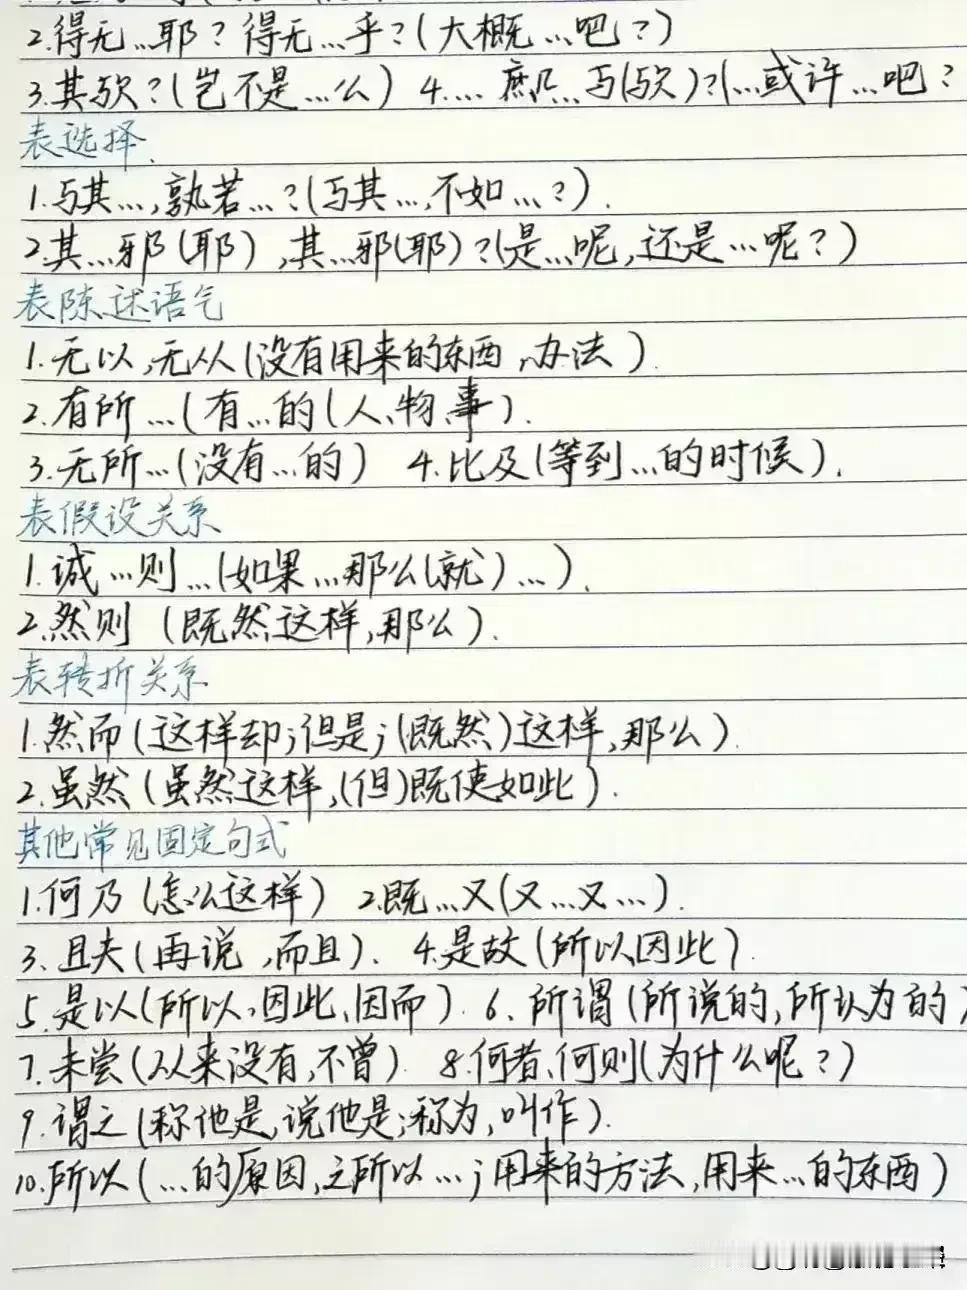 2.得无…耶？得无…乎？(大概…吧？)
3.其欤？(岂不是…么) 4.…庶几…与(欤)？(…或许…吧？
表选择.
1.与其…,孰若…？(与其…,不如…？).
2.其…邪(耶),其…邪(耶)？(是…呢,还是…呢？)
表陈述语气
1.无以,无从(没有用来的东西,办法).
2.有所…(有…的(人、物、事).
3.无所…(没有…的) 4.比及(等到…的时候).
表假设关系
1.诚…则…(如果…那么(就)…).
2.然则(既然这样,那么).
表转折关系
1.然而(这样却;但是;(既然)这样,那么).
2.虽然(虽然这样,(但)既使如此).
其他常见固定句式
1.何乃(怎么这样) 2.既…又(又…又…).
3、且夫(再说,而且). 4.是故(所以因此)
5.是以(所以,因此,因而). 6、所谓(所说的,所认为的)
7.未尝(从来没有,不曾). 8.何者、何则(为什么呢？)
9.谓之(称他是,说他是;称为,叫作).
10.所以(…的原因,之所以…;用来的方法,用来…的东西)